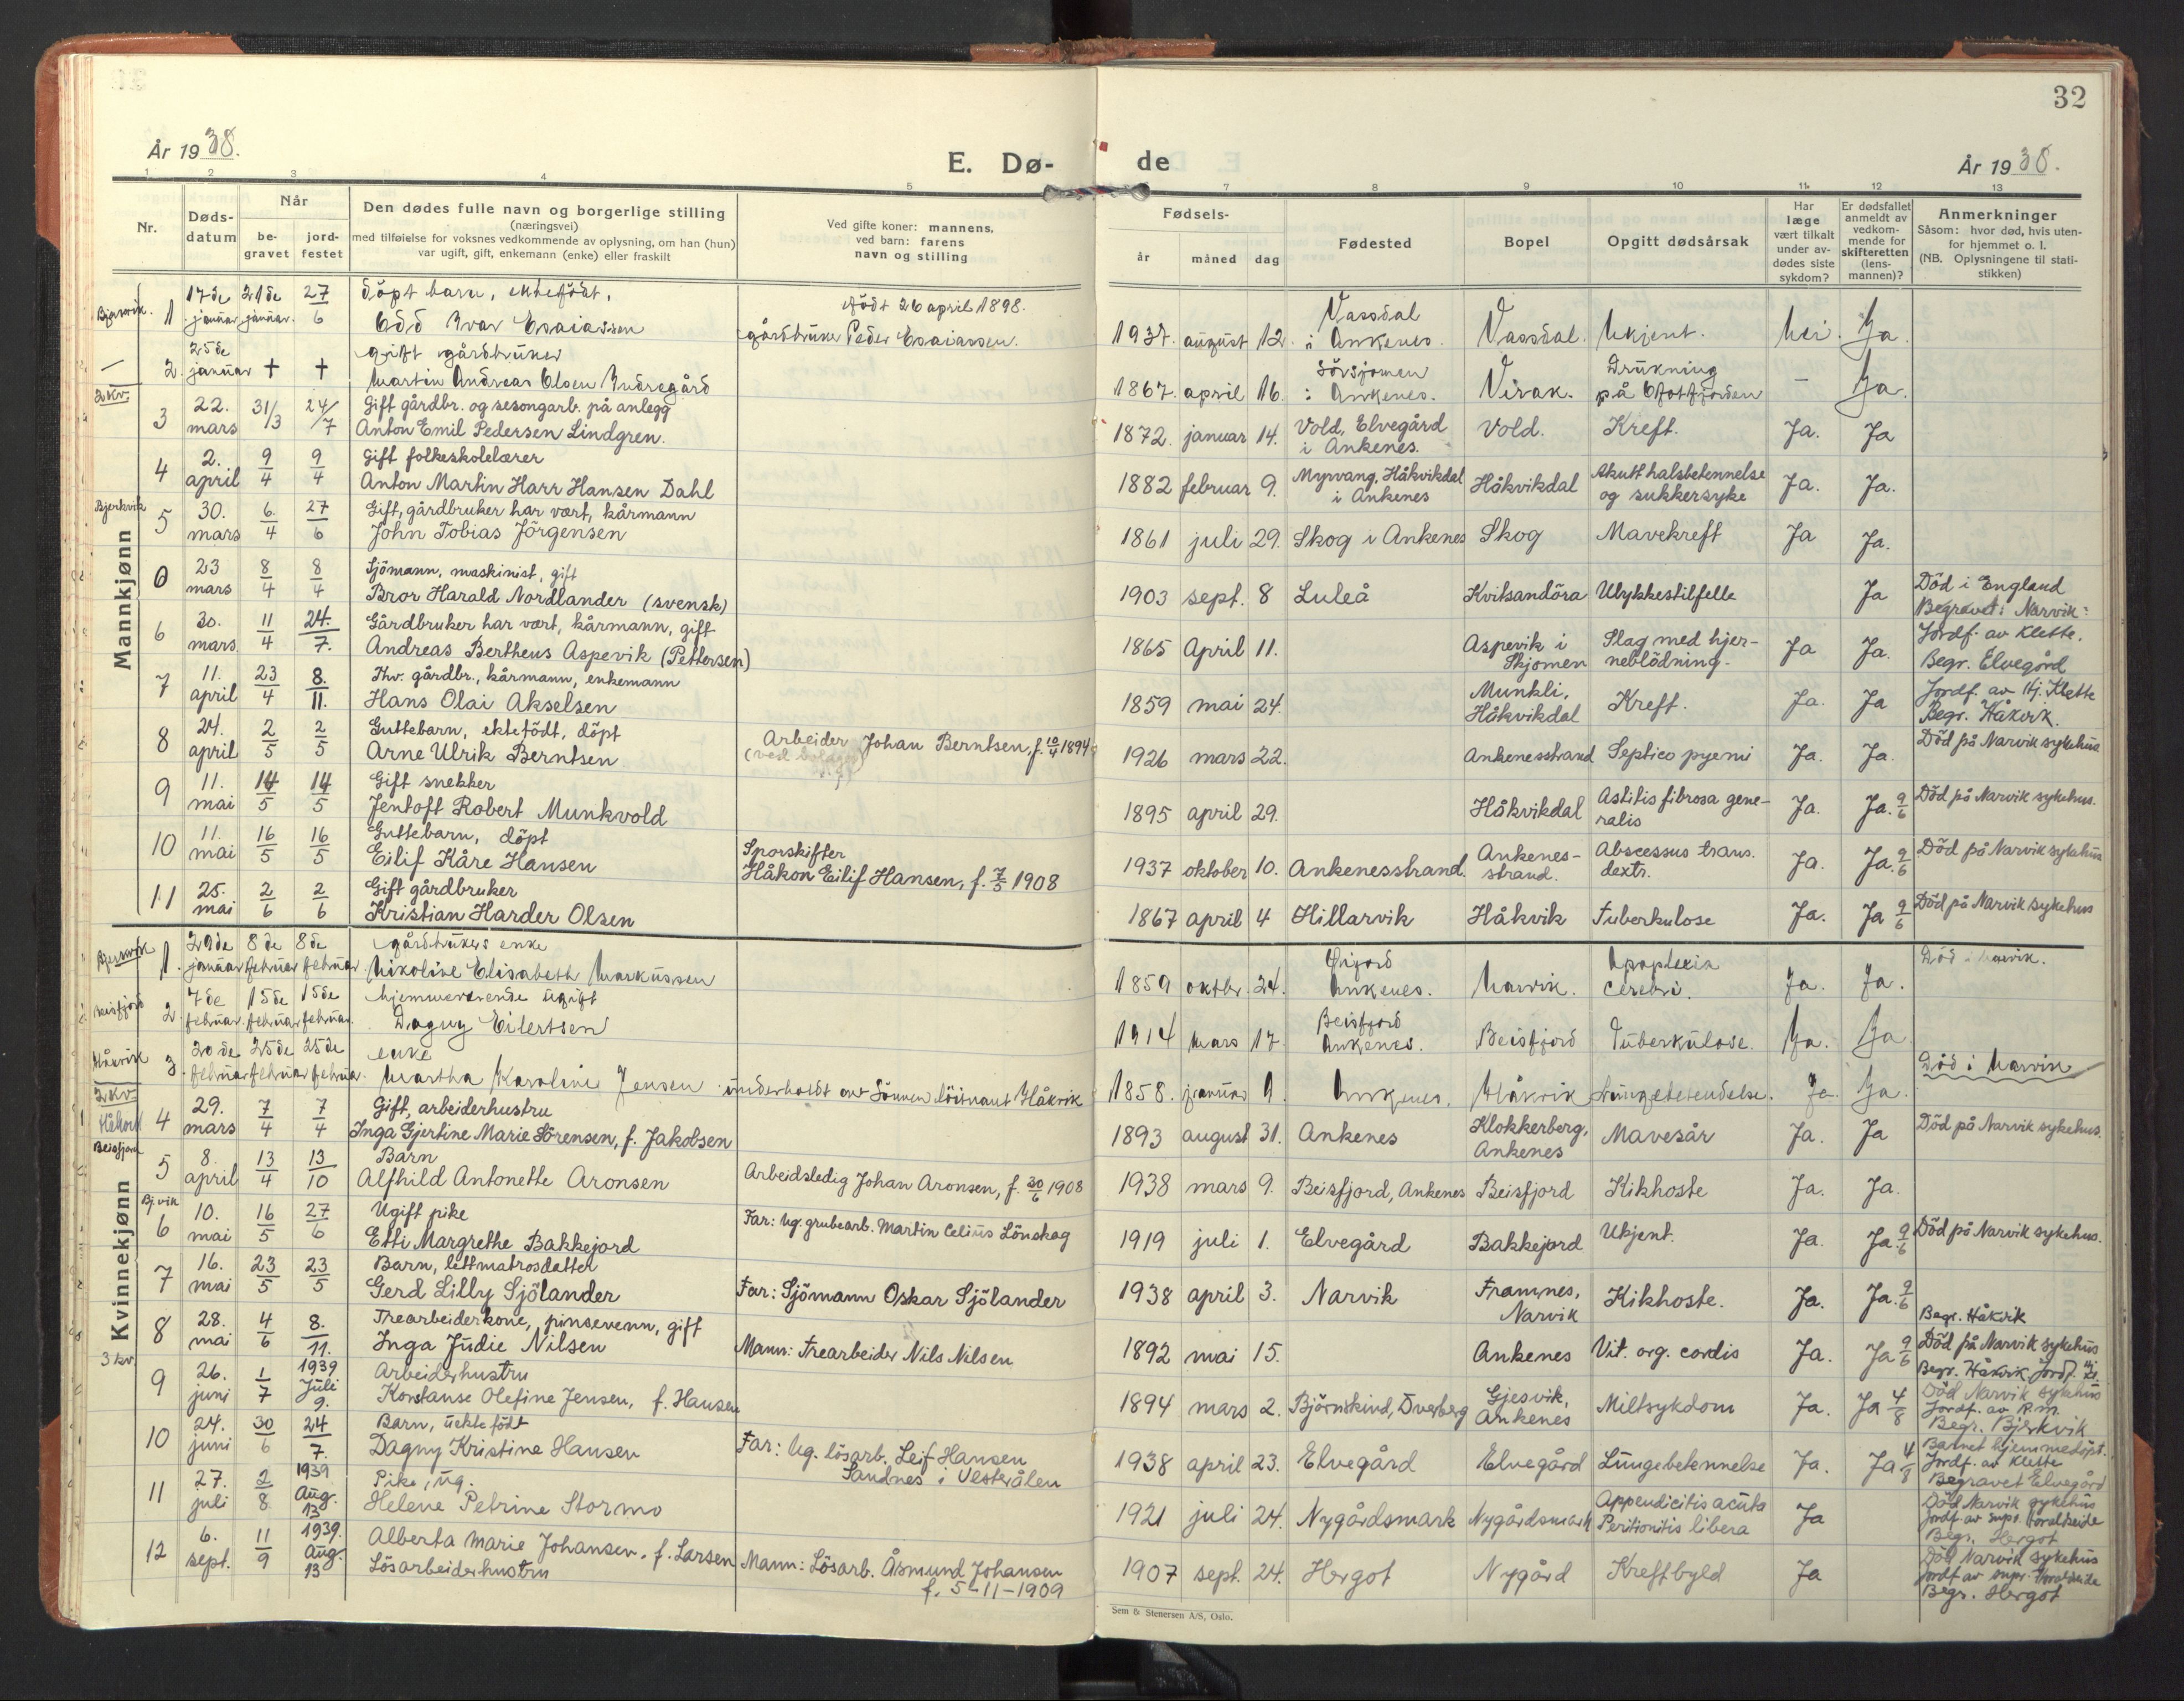 32
År 1938.
E. Dø-
de
År 1938.
1 2 3 4 5 7 8 9 10 11 12 13
Nr.
Døds-
datum
Når
be-
gravet
jord-
festet
Den dødes fulle navn og borgerlige stilling
(næringsvei)
med tilføielse for voksnes vedkommende av oplysning, om han (hun)
var ugift, gift, enkemann (enke) eller fraskilt
Ved gifte koner: mannens,
ved barn: farens
navn og stilling
Fødsels-
år måned dag
Fødested
Bopel
Opgitt dødsårsak
Har
læge
vært tilkalt
under av-
dødes siste
sykdom?
Er dødsfallet
anmeldt av
vedkom-
mende for
skifteretten
(lens-
mannen)?
Anmerkninger
Såsom: hvor død, hvis uten-
for hjemmet o. l.
(NB. Oplysningene til stati-
stikken)
Mannkjønn
Bjerkvik. 1 17de januar 21de januar. 27/6 döpt barn, ektefödt,
Odd Ivar Esaiassen
födt 26 april 1898.
gårdbruker Peder Esaiassen.
1937. august 12. Vassdal i Ankenes. Vassdal. Ukjent. Nei. Ja.
— 2. 25de januar + + gift gårdbruker
Martin Andreas Olsen Indregård
1867. april 16. Sörsjomen i Ankenes. Virak. Drukning på Ofotfjorden – Ja.
2 kv.
3 22. mars 31/3 24/7 Gift gårdbr. og sesongarb. på anlegg
Anton Emil Pedersen Lindgren.
1872. januar 14. Vold, Elvegård i Ankenes. Vold. Kreft. Ja. Ja
4 2. april 9/4 9/4 Gift folkeskolelærer
Anton Martin Harr Hansen Dahl
1882 februar 9. Myrvang, Håkvikdal i Ankenes Håkvikdal Akutt halsbetennelse og sukkersyke Ja. Ja.
Bjerkvik 5 30. mars 6./4 27/6 Gift, gårdbruker har vært, kårmann
John Tobias Jörgensen
1861 juli 29. Skog i Ankenes Skog Mavekreft Ja Ja.
0 23 mars 8/4 8/4 Sjömann, maskinist, gift
Bror Harald Nordlander (svensk)
1903 sept. 8 Luleå Kvitsandöra Ulykkestilfelle Ja Död i England
Begravet i Narvik:
6 30. mars 11/4 24./7. Gårdbruker har vært, kårmann, gift
Andreas Bertheus Aspevik (Pettersen)
1865 April 11. Aspevik i Skjomen Slag med hjer-
neblödning. Ja Ja. Jordf. av Klette.
Begr. Elvegård
7 11. april 23/4 8./11. Fhv. gårdbr., kårmann, enkemann
Hans Olai Akselsen
1859 mai 24. Munkli, Håkvikdal Kreft. Ja. Ja Jordf. av Hj. Klette
Begr. Håkvik.
8 24. april 2/5 2/5 Guttebarn, ektefödt, döpt
Arne Ulrik Berntsen
Arbeider Johan Berntsen, f. 10/4 1894
1926 mars 22. Ankenesstrand Septico pyemi Ja. Ja. Död på Narvik sykehus
9 11. mai 14/5 14/5 Gift snekker
Jentoft Robert Munkvold
1895 april 29. Håkvikdal Astitis fibrosa gene-
ralis Ja. Ja. 9/6 Död på Narvik sykehus.
10 11. mai 16/5 16/5 Guttebarn, döpt
Eilif Kåre Hansen
Sporskifter
Håkon Eilif Hansen, f. 7/5 1908
1937 oktober 10. Ankenesstrand. Ankenes-
strand. Abscessus trans. dextr. Ja. Ja. 9/6 Död på Narvik sykehus
11 25. mai 2/6 2/6 Gift gårdbruker
Kristian Harder Olsen
1867 april 4 Hillarvik Håkvik Tuberkulose Ja. Ja 9/6 Död på Narvik sykehus
Kvinnekjønn
Bjerkvik 1. 29de januar 8de februar 8de februar gårdbrukers enke
Nikoline Elisabeth Markussen
1859 oktbr. 24. Öijord Ankenes. Narvik. Apoplexia cerebri. Ja. Ja. Död i Narvik.
Beisfjord 2. 7de februar. 15de februar 15de februar. hjemmeværende ugift
Dagny Eilertsen
1914 mars 17. Beisfjord Ankenes. Beisfjord Tuberkulose. Ja. Ja
Håkvik 3. 20de februar 25de februar 25de februar. enke
Martha Karoline Jensen underholdt av Sönnen löitnant Håkvik
1858. januar 9. Ankenes. Håkvik Lungebetendelse. Ja. Ja. Död i Narvik
2 kv.
Håkvik 4 29. mars 7/4 7/4 Gift, arbeiderhustru
Inga Gjertine Marie Sörensen, f. Jakobsen
1893 august 31. Ankenes Klokkerberg, Ankenes Mavesår Ja. Ja Död på Narvik sykehus.
Beisfjord 5 8. april 13/4 13/10 Barn
Alfhild Antonette Aronsen
Arbeidsledig Johan Aronsen, f. 30/6 1908
1938 mars 9. Beisfjord, Ankenes Beisfjord Kikhoste Ja. Ja.
Bj.vik 6 10. mai 16/5 27/6 Ugift pike
Etti Margrethe Bakkejord
Far: Ug. grubearb. Martin Celius Lönskog
1919 juli 1. Elvegård Bakkejord Ukjent. Ja. Ja. 9/6 Död på Narvik sykehus.
7 16. mai 23/5 23/5 Barn, lettmatrosdatter
Gerd Lilly Sjölander
Far: Sjömann Oskar Sjölander
1938 april 3. Narvik Framnes, Narvik Kikhoste. Ja. Ja. 9/6
8 28. mai 4/6 8./11. Trearbeiderkone, pinsevenn, gift
Inga Judie Nilsen
Mann: Trearbeider Nils Nilsen
1892 mai 15. Ankenes Vit. org. cordis Ja. Ja 9/6 Begr. Håkvik
Död på Narvik sykehus
Begr. Håkvik. Jordf. Hj.
3 kv.
9 26. juni 1/7 1939 Juli 9. Arbeiderhustru
Konstanse Olefine Jensen, f. Hansen
1894 mars 2. Björnskind, Dverberg Gjesvik, Ankenes Miltsykdom Ja. Ja 4/8 Död Narvik sykehus
Jordf. av R.m.
Begr. Bjerkvik
10 24. juni 30/6 24/7. Barn, uekte födt
Dagny Kristine Hansen
Far: Ug. lösarb. Leif Hansen
Sandnes i Vesterålen
1938 april 23. Elvegård Elvegård Lungebetennelse Ja. Ja 4/8 Barnet hjemmedöpt.
Jordf. av Klette
Begravet Elvegård
11 27. juli 2/8 1939 Aug. 13 Pike, ug.
Helene Petrine Stormo
1921 juli 24. Nygårdsmark Nygårdsmark Appendicitis acuta
Peritionitis libera Ja Död Narvik sykehus
Jordf. av supr.
Begr. Hergot
12 6. sept. 11/9 1939. Aug. 13 Alberta Marie Johansen, f. Larsen
Lösarbeiderhustru
Mann: Lösarb. Åsmund Johansen
f. 5-11-1909
1907 sept. 24. Hergot Nygård Kreftbyld Ja Död Narvik sykehus
Jordf. av supr.
Begr. Hergot
Sem & Stenersen A/S, Oslo.